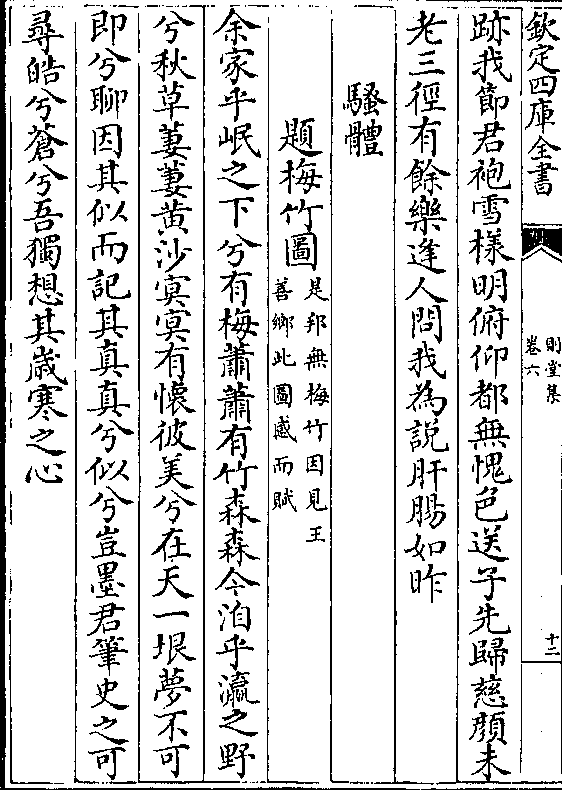 欽定四庫全書
則堂集
卷六
十二
跡我節君袍雪様明俯仰都無愧色送子先歸慈顔未
老三徑有餘樂逢人問我為說肝腸如昨
騷體
題梅竹圖
是邦無梅竹因見王
善鄉此圖感而賦
余家乎岷之下兮有梅蕭蕭有竹森森今泊乎瀛之野
兮秋草萋萋黄沙㝠㝠有懐彼美兮在天一垠夢不可
即兮聊因其似而記其真真兮似兮豈墨君筆史之可
尋皓兮蒼兮吾獨想其歳寒之心